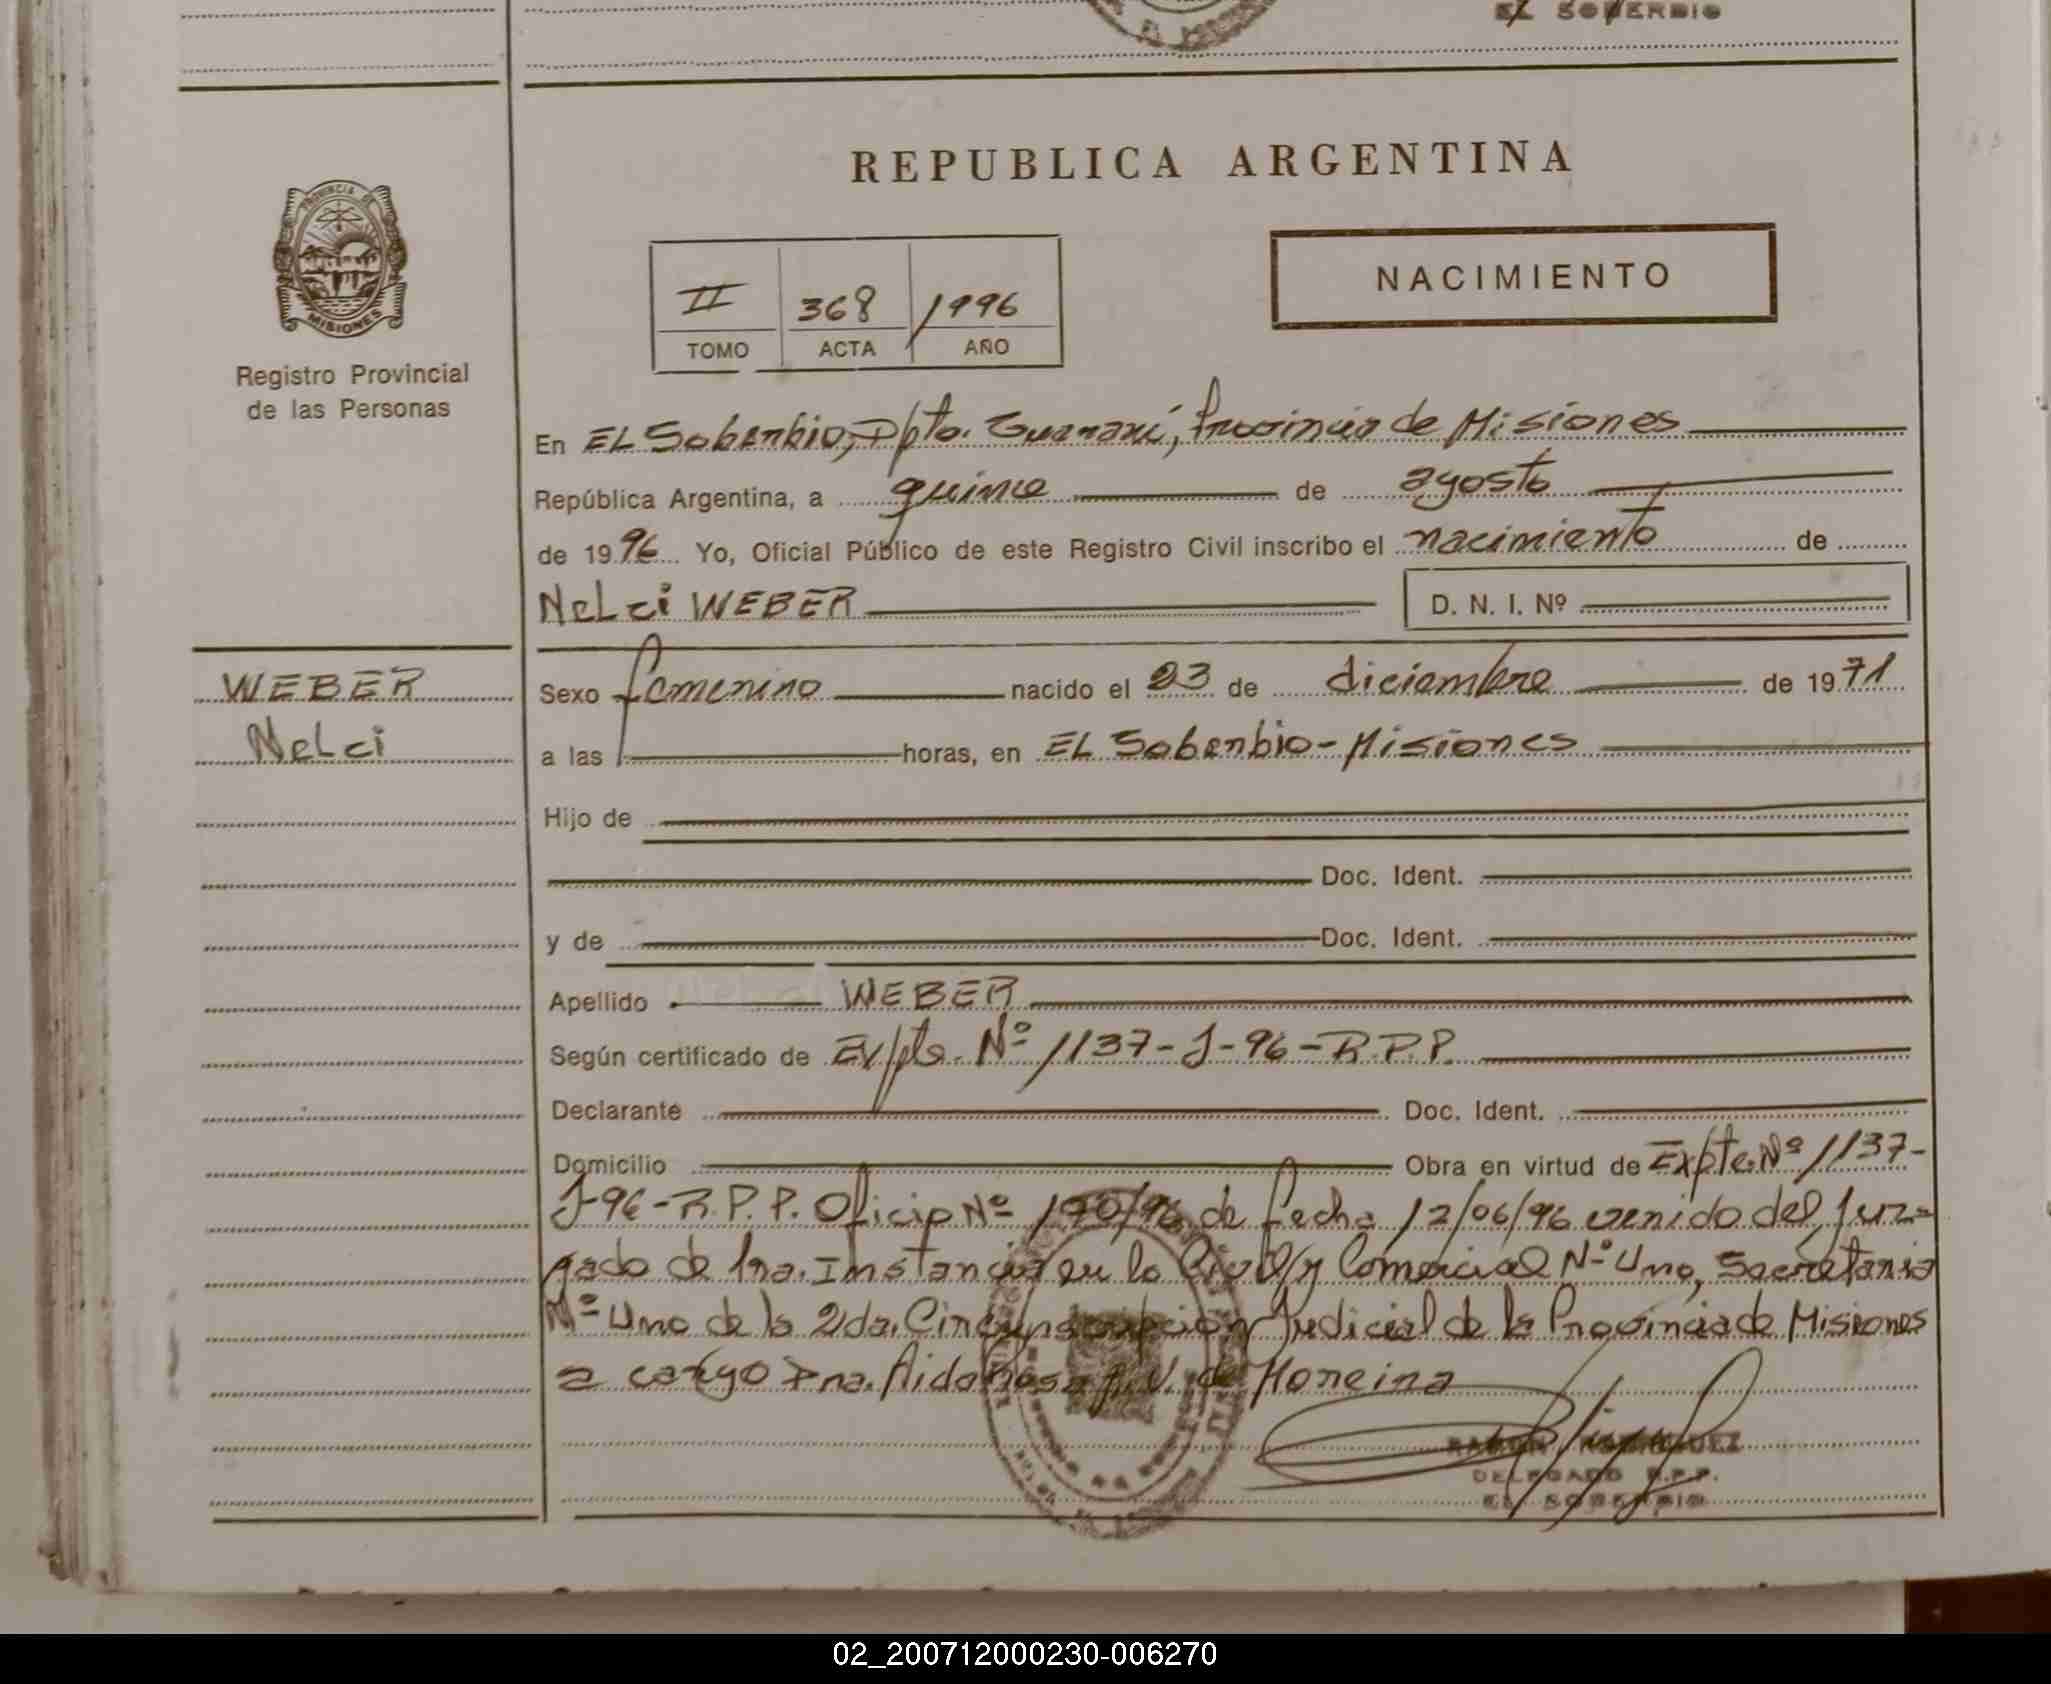 EL SOBERBIO
REPUBLICA ARGENTINA
PROVINCIA DE
MISIONES
Registro Provincial
de las Personas
II 368 1996
TOMO ACTA AÑO
NACIMIENTO
En EL Soberbio, Dpto. Guaraní, Provincia de Misiones
República Argentina, a quince de agosto
de 1996 Yo, Oficial Público de este Registro Civil inscribo el nacimiento de
NeLci WEBER D. N. I. Nº
WEBER
NeLci
Sexo femenino nacido el 23 de diciembre de 1971
a las horas, en EL Soberbio - Misiones
Hijo de
Doc. Ident.
y de Doc. Ident.
Apellido WEBER
Según certificado de Expte. Nº 1137-J-96-R.P.P.
Declarante Doc. Ident.
Domicilio Obra en virtud de Expte. Nº 1137-
J-96-R.P.P. Oficio Nº 190/96 de fecha 12/06/96 venido del Juz-
gado de 1ra. Instancia en lo Civil y Comercial Nº Uno, Secretaria
Nº Uno de la 2da. Circunscripción Judicial de la Provincia de Misiones
a cargo Dra. Aida Rosa de Moreira
DELEGADO R.P.P.
EL SOBERBIO
02_200712000230-006270